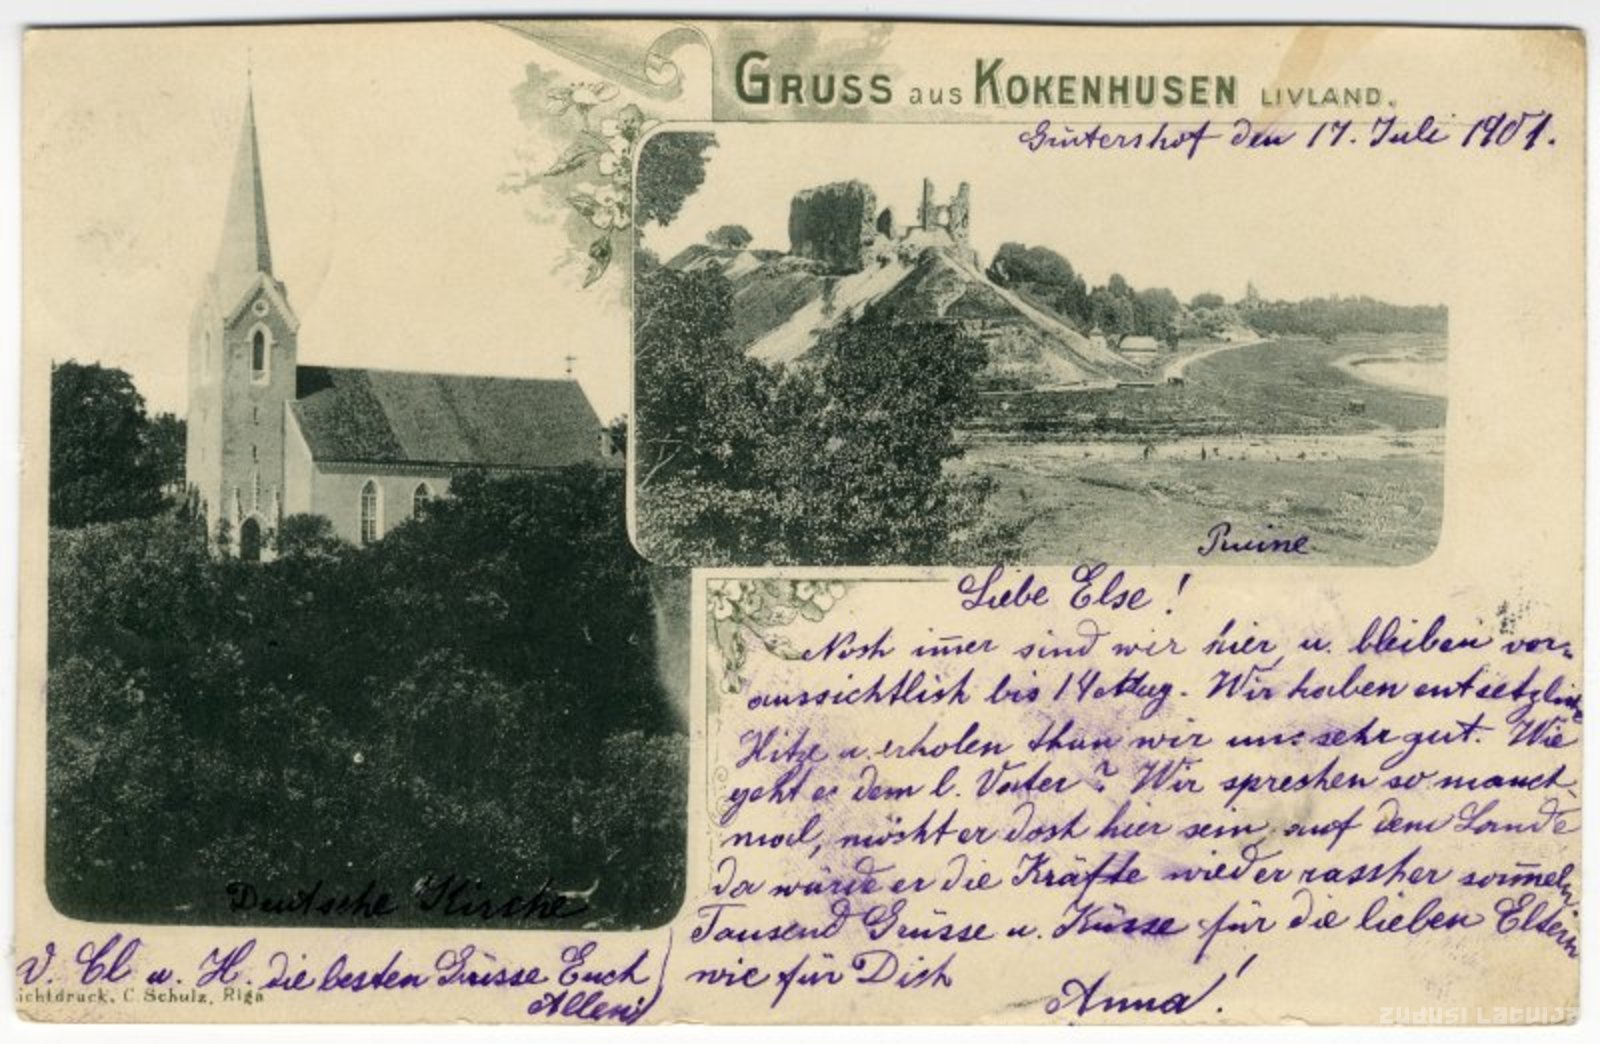 GRUSS aus KOKENHUSEN LIVLAND.
den 17. Juli 1901.
Ruine
Liebe Else!
Noch im̄er sind wir hier u. bleiben vor-
aussichtlich bis 14 Aug. Wir haben entsetzliche
Hitze u. erholen thun wir uns sehr gut. Wie
geht es dem l. Vater? Wir sprechen so manch-
mal, möcht er doch hier sein, auf dem Lande
da würde er die Kräfte wieder rascher som̄eln
Tausend Grüsse u. Küsse für die lieben Eltern
wie für Dich
Anna!
Deutsche Kirche
V. Cl u. H. die besten Grüsse Euch
Allen
ichtdruck, C. Schulz, Riga
zudusi Latvija